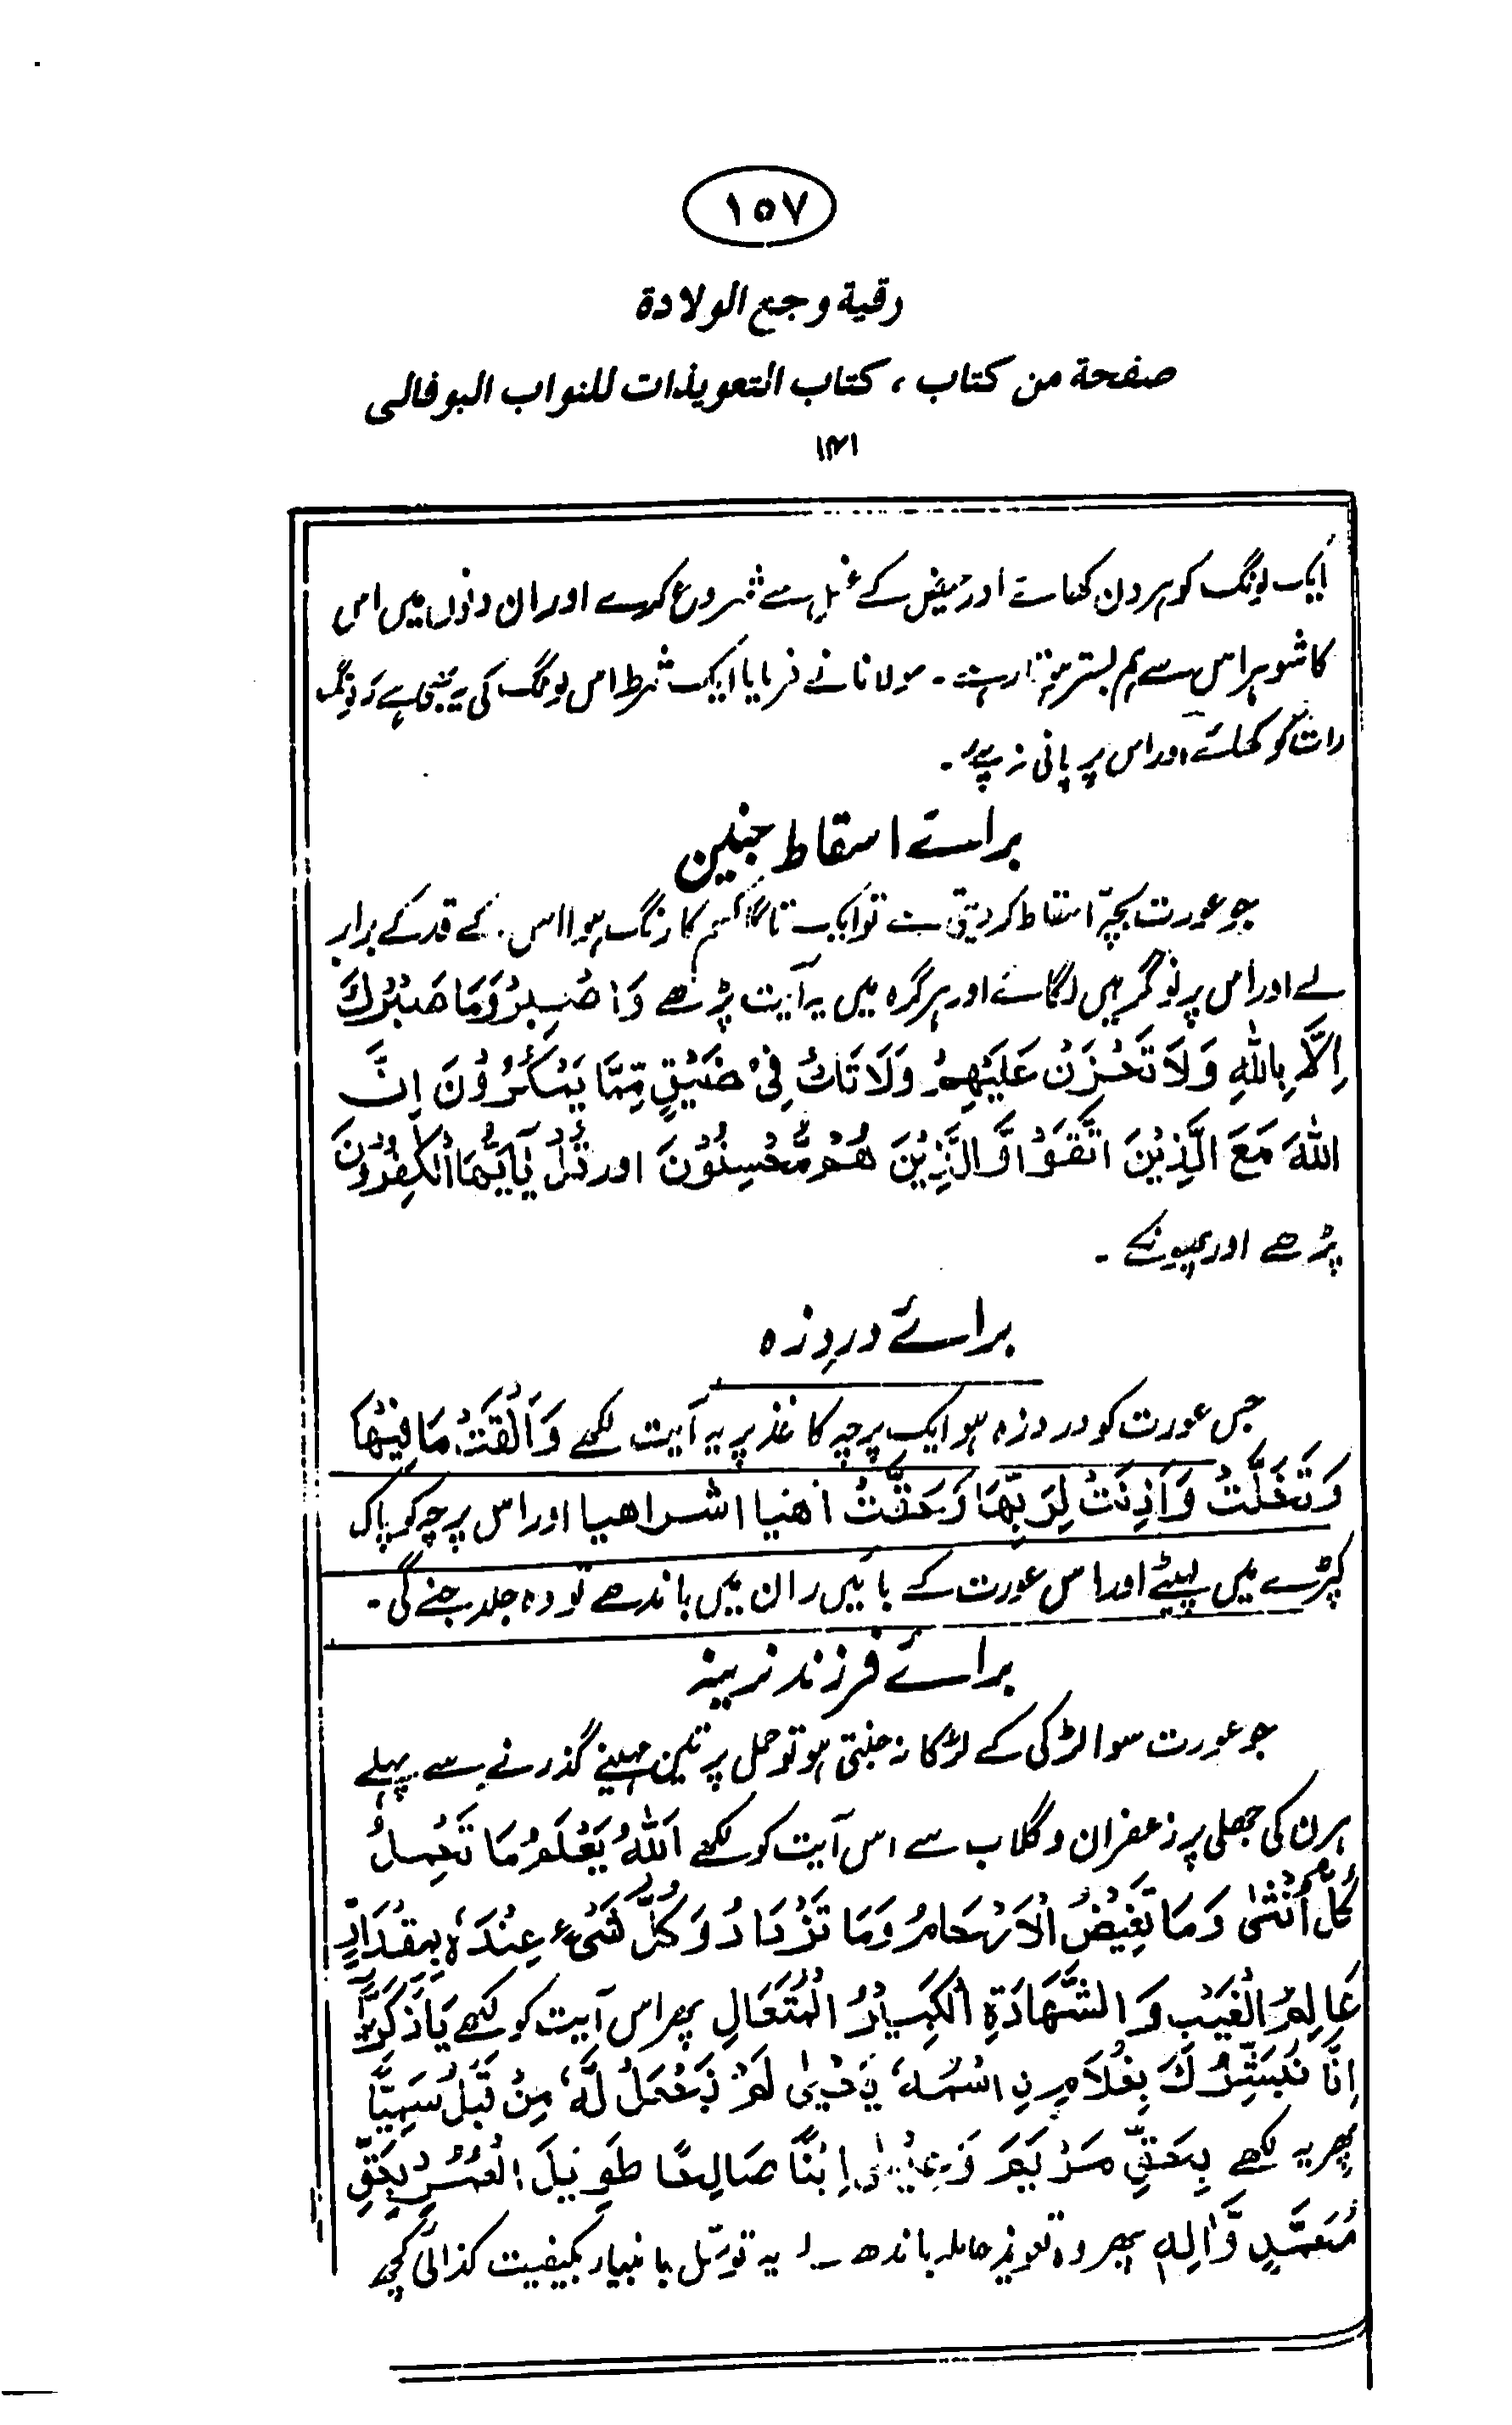 ١٥٧
رقية وجع الولادة
صفحة من كتاب ، كتاب التعويذات للنواب البوفالى
١٣١
ایک لونگ کو ہر دن کھائے اور حیض کے غسل سے شروع کرے اور ان دنوں میں اس
کا شوہر اس سے ہم بستر ہوتا رہے ۔ مولانا نے فرمایا ایک شرط اس لونگ کی یہ بھی ہے کہ لونگ
رات کو کھائے اور اس پر پانی نہ پیے ۔
برائے اسقاط جنین
جو عورت بچہ اسقاط کر دیتی ہے تو ایک تاگا کسم کا رنگ ہوا اس کے قد کے برابر
لے اور اس پر نو گرہیں لگائے اور ہر گرہ میں یہ آیت پڑھے وَاصْبِرْ وَمَا صَبْرُكَ
اِلَّا بِاللّٰهِ وَلَا تَحْزَنْ عَلَيْهِمْ وَلَا تَكُ فِىْ ضَيْقٍ مِّمَّا يَمْكُرُوْنَ اِنَّ
اللّٰهَ مَعَ الَّذِيْنَ اتَّقَوْا وَّالَّذِيْنَ هُمْ مُّحْسِنُوْنَ اور قُلْ يٰاَيُّهَا الْكٰفِرُوْنَ
پڑھے اور پھونکے ۔
برائے درد زہ
جس عورت کو درد زہ ہو ایک پرچہ کاغذ پر یہ آیت لکھے وَاَلْقَتْ مَا فِيْهَا
وَتَخَلَّتْ وَاَذِنَتْ لِرَبِّهَا وَحُقَّتْ اهيا اشراهيا اور اس پرچہ کو پاک
کپڑے میں لپیٹے اور اس عورت کے بائیں ران میں باندھے تو وہ جلد جنے گی ۔
برائے فرزند نرینہ
جو عورت سوا لڑکی کے لڑکا نہ جنتی ہو تو حمل پر تین مہینے گذرنے سے پہلے
ہرن کی جھلی پر زعفران و گلاب سے اس آیت کو لکھے اَللّٰهُ يَعْلَمُ مَا تَحْمِلُ
كُلُّ اُنْثٰى وَمَا تَغِيْضُ الْاَرْحَامُ وَمَا تَزْدَادُ وَكُلُّ شَىْءٍ عِنْدَهٗ بِمِقْدَارٍ
عَالِمُ الْغَيْبِ وَالشَّهَادَةِ الْكَبِيْرُ الْمُتَعَالِ پھر اس آیت کو لکھے يَا زَكَرِيَّا
اِنَّا نُبَشِّرُكَ بِغُلَامِ نِ اسْمُهٗ يَحْيٰى لَمْ نَجْعَلْ لَّهٗ مِنْ قَبْلُ سَمِيًّا
پھر یہ لکھے بِحَقِّ مَرْيَمَ وَعِيْسٰى اِبْنًا صَالِحًا طَوِيْلَ الْعُمُرِ بِحَقِّ
مُحَمَّدٍ وَّاٰلِهٖ پھر وہ تعویذ حاملہ باندھ لے یہ توسل بانبیاء بکیفیت کذائی کچھ